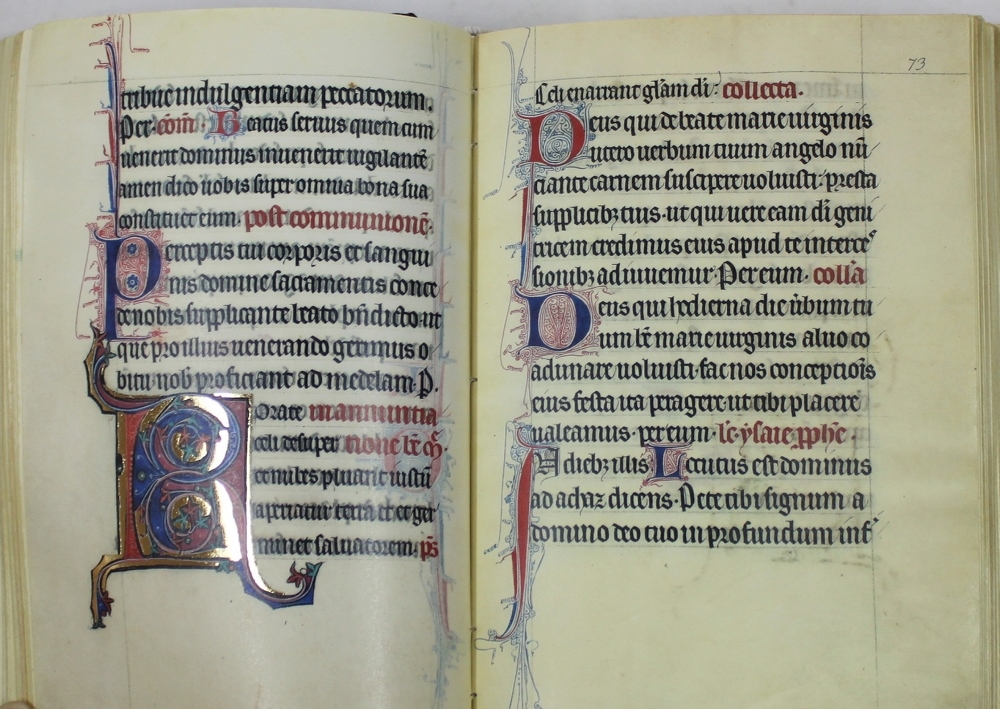 tribue indulgentiam peccatorum.
Per. cōm̄. Beatus seruus quem cum
uenerit dominus inuenerit uigilantē
amen dico uobis super omnia bona sua
constituet eum. post communionē.
Perceptis tui corporis et sangui
nis domine sacramentis conce
de nobis supplicante beato bn̄dicto ut
que pro illius uenerando gerimus o
bitu nob proficiant ad medelam. P.
Rorate in annuntia
celi desuper tione bē
et nubes pluant iustū
aperiatur terra et ger
minet saluatorem. p̄s
Celi enarrant gl̄am dī: collecta.
Deus qui de beate marie uirginis
utero uerbum tuum angelo nū
ciante carnem suscipere uoluisti. presta
supplicibz tuis. ut qui uere eam dī geni
tricem credimus eius apud te interces
sionibz adiuuemur. Per eum. coll̄a
Deus qui hodierna die ūbum tu
um bē marie uirginis aluo co
adunare uoluisti. fac nos conceptiōis
eius festa ita peragere ut tibi placere
ualeamus. per eum. lc̄. ysaie p̄ph̄e.
In diebz illis. Locutus est dominus
ad achaz dicens. Pete tibi signum a
domino deo tuo in profundum inf
73